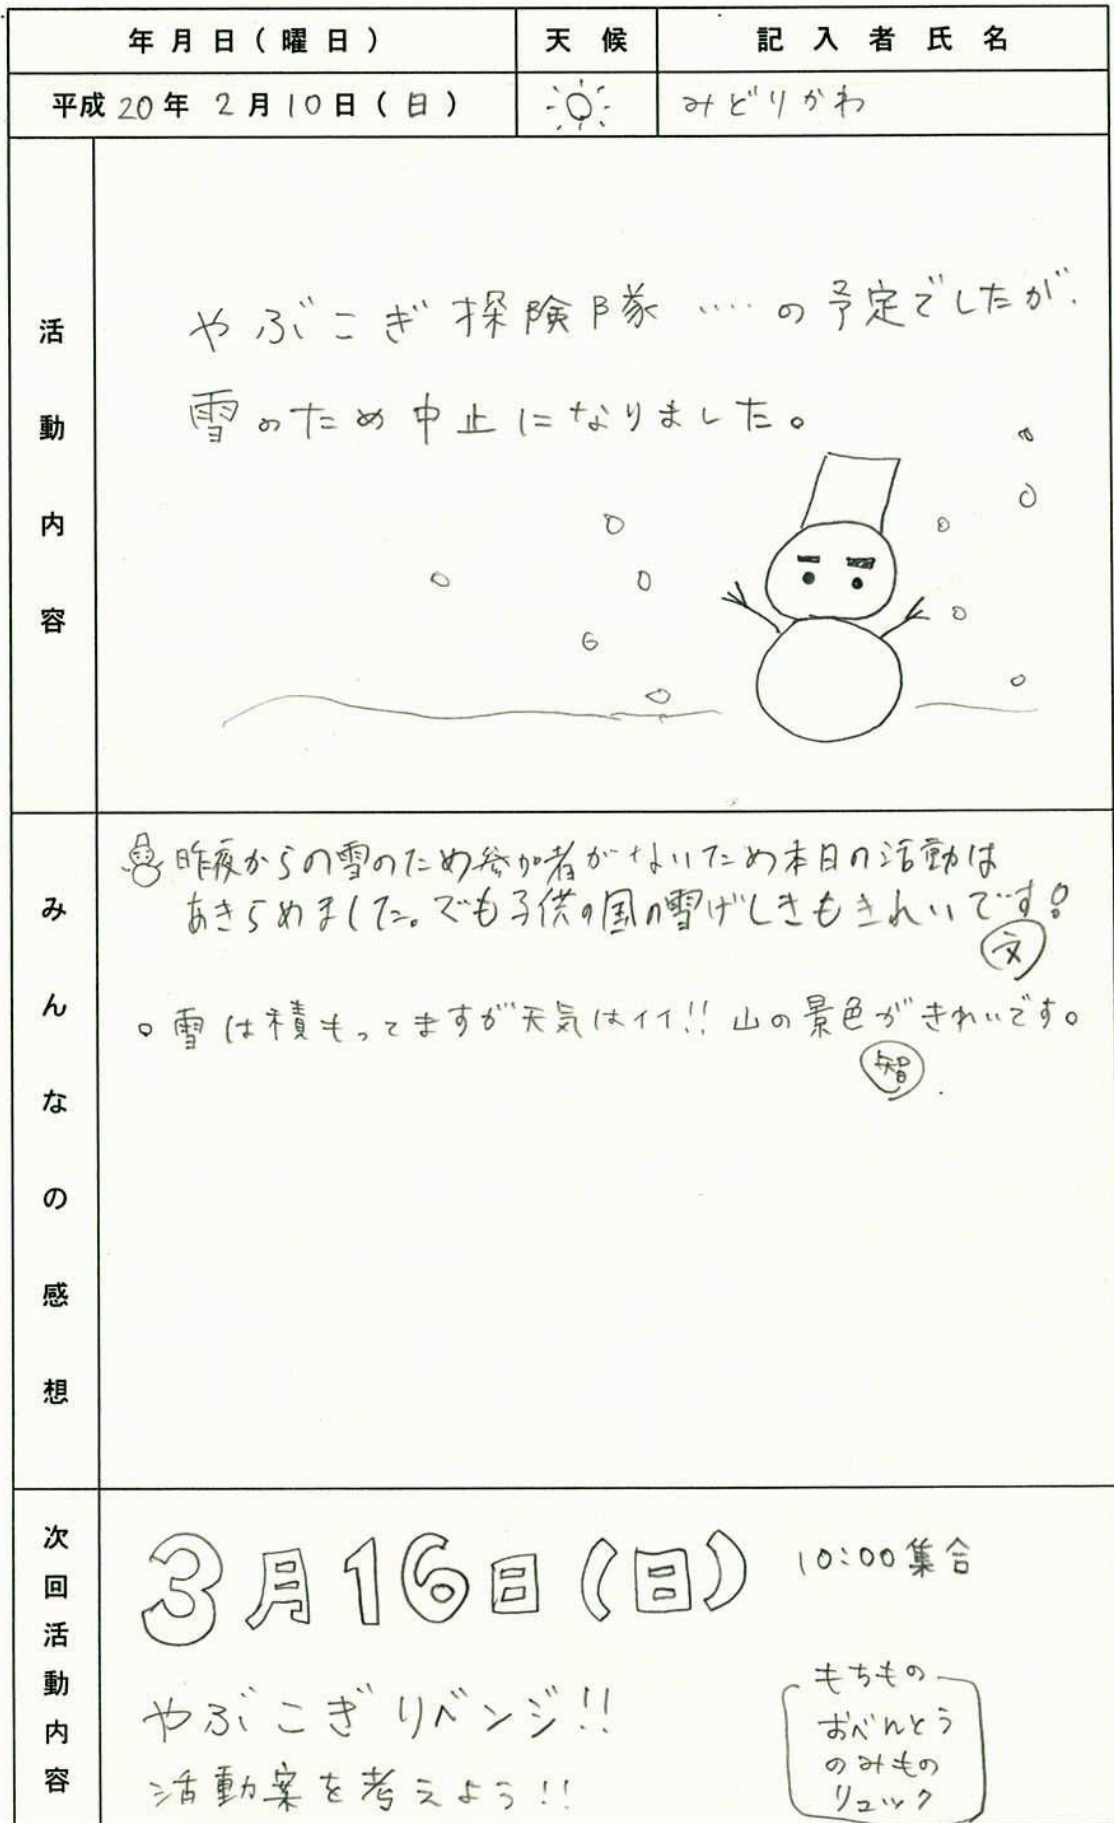 年月日(曜日) 天候 記入者氏名
平成20年 2月10日(日) みどりかわ
活動内容
やぶこぎ探険隊 ‥‥の予定でしたが、
雪のため中止になりました。
みんなの感想
昨夜からの雪のため参加者がないため本日の活動は
あきらめました。でも子供の国の雪げしきもきれいです!
文
○ 雪は積もってますが天気はイイ!! 山の景色がきれいです。
智
次回活動内容
3月16日(日) 10:00集合
やぶこぎリベンジ!!
活動案を考えよう!!
もちもの
おべんとう
のみもの
リュック